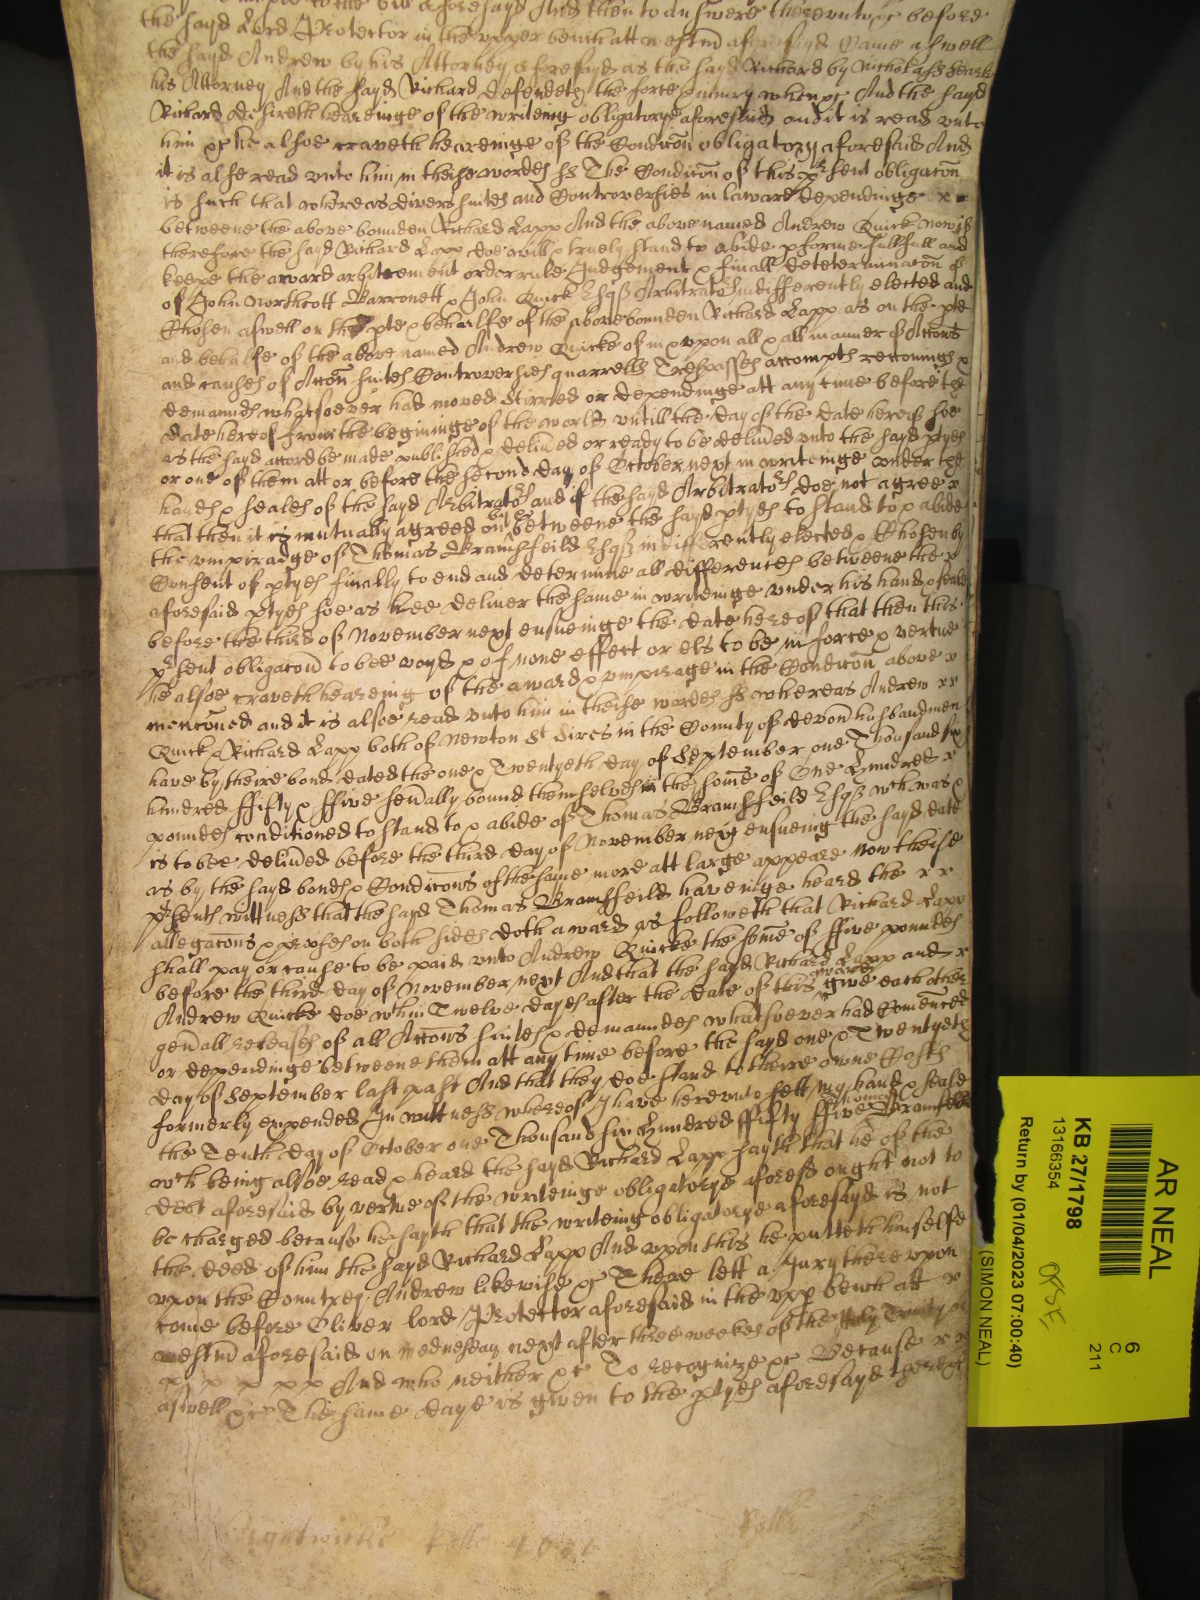 to the bill aforesayd And then to answere therevnto &c before
the sayd Lord Protector in the vpper bench att Westm aforesayd Came aswell
the sayd Andrew by his Attorney aforesayd as the sayd Richard by Nicholass
his Attorney And the sayd Richard defendeth the force & iniury when &c And the sayd
Richard desireth heareinge of the writeing obligatorye aforesaid and it is read vnto
him &c he alsoe craveth heareinge of the Condicon obligatory aforesaid And
it is alsoe read vnto him in theise wordes ss The Condicon of this psent obligacon
is such that whereas divers suites and Controversies in law are dependinge
betweene the above bounden Richard Lapp And the above named Andrew Quick Now if
therefore the sayd Richard Lapp doe well & truely stand to abide pforme fullfill and
keepe the award arbitrement order rule Judgement & finall determinacon
of John Northcott Barronett & John Quick Esqr Arbitrators indifferently elected and
Chosen aswell on the pte & behalfe of the abovebounden Richard Lapp as on the pte
and behalfe of the above named Andrew Quicke of in & vpon all & all manner of Accons
and causes of Accon suites Controversies quarrells Trespasses accompts reconings &
demaundes whatsoever had moved stirred or dependinge att any time before the
date hereof from the begininge of the world vntill the day of the date hereof soe
as the sayd award be made published & delived or ready to be delived vnto the sayd ptyes
or one of them att or before the second day of October next in writeinge vnder the
handes & seales of the sayd Arbitrators and if the sayd Arbitrators doe not agree
that then it is mutually agreed on by & betweene the sayd ptyes to stand to & abide
the vmpiradge of Thomas Bramffeild Esqr indifferently elected & Chosen by
Consent of ptyes finally to end and determine all differences betweene the
aforesaid ptyes soe as hee deliver the same in writeinge vnder his hand & seale
before the third of November next ensueinge the date hereof that then this
psent obligacon to bee voyd & of none effect or els to be in force & vertue
he alsoe craveth heareing of the award & vmpirage in the Condicon above
menconed and it is alsoe read vnto him in theise wordes ss whereas Andrew
Quick & Richard Lapp both of Newton St Cires in the County of Devon husbandmen
have by theire bond dated the one & Twentyeth day of September one Thousand six
hundred ffifty & ffive sevally bound themselves in the some of One hundred
poundes conditioned to stand to & abide of Thomas Bramffeild Esqr wch was &
is to bee delived before the third day of November next ensueing the sayd date
as by the sayd bondes & Condicons of the same more att large appeare Now theise
psents wittness that the sayd Thomas Bramffeild haveinge heard the
allegacons & proofes on both sides doth award as followeth that Richard Lapp
shall pay or cause to be paid vnto Andrew Quicke the some of ffive poundes
before the third day of November next And that the sayd Richard Lapp and
Andrew Quicke doe wthin Twelve dayes after the date of this award give each other
genall releases of all Accons suites & demaundes whatsoever had Comenced
or dependinge betweene them att any time before the sayd one & Twentyeth
day of September last past And that they doe stand to theire owne Costs
formerly expended In wittness whereof I have herevnto sett my hand & seale
the Tenth day of October one Thousand six hundred ffifty ffive Thomas Bramfeild
wch being alsoe read & heard the sayd Richard Lapp sayth that he of the
debt aforesaid by vertue of the writeinge obligatorye aforesd ought not to
be charged because he sayth that the writeing obligatorye aforesayd is not
the deed of him the sayd Richard Lapp And vpon this he putteth himselfe
vpon the Countrey Andrew likewise &c There lett a Jury therevpon
come before Oliver lord Protector aforesaid in the vpp bench att
Westm aforesaid on Wednesday next after three weekes of the holy Trinity
And who neither &c To recognize &c Because
aswell &c The same daye is given to the ptyes aforesayd there &c
AR NEAL
6
C
211
KB 27/1798
13166354
Return by (01/04/2023 07:00:40)
(SIMON NEAL)